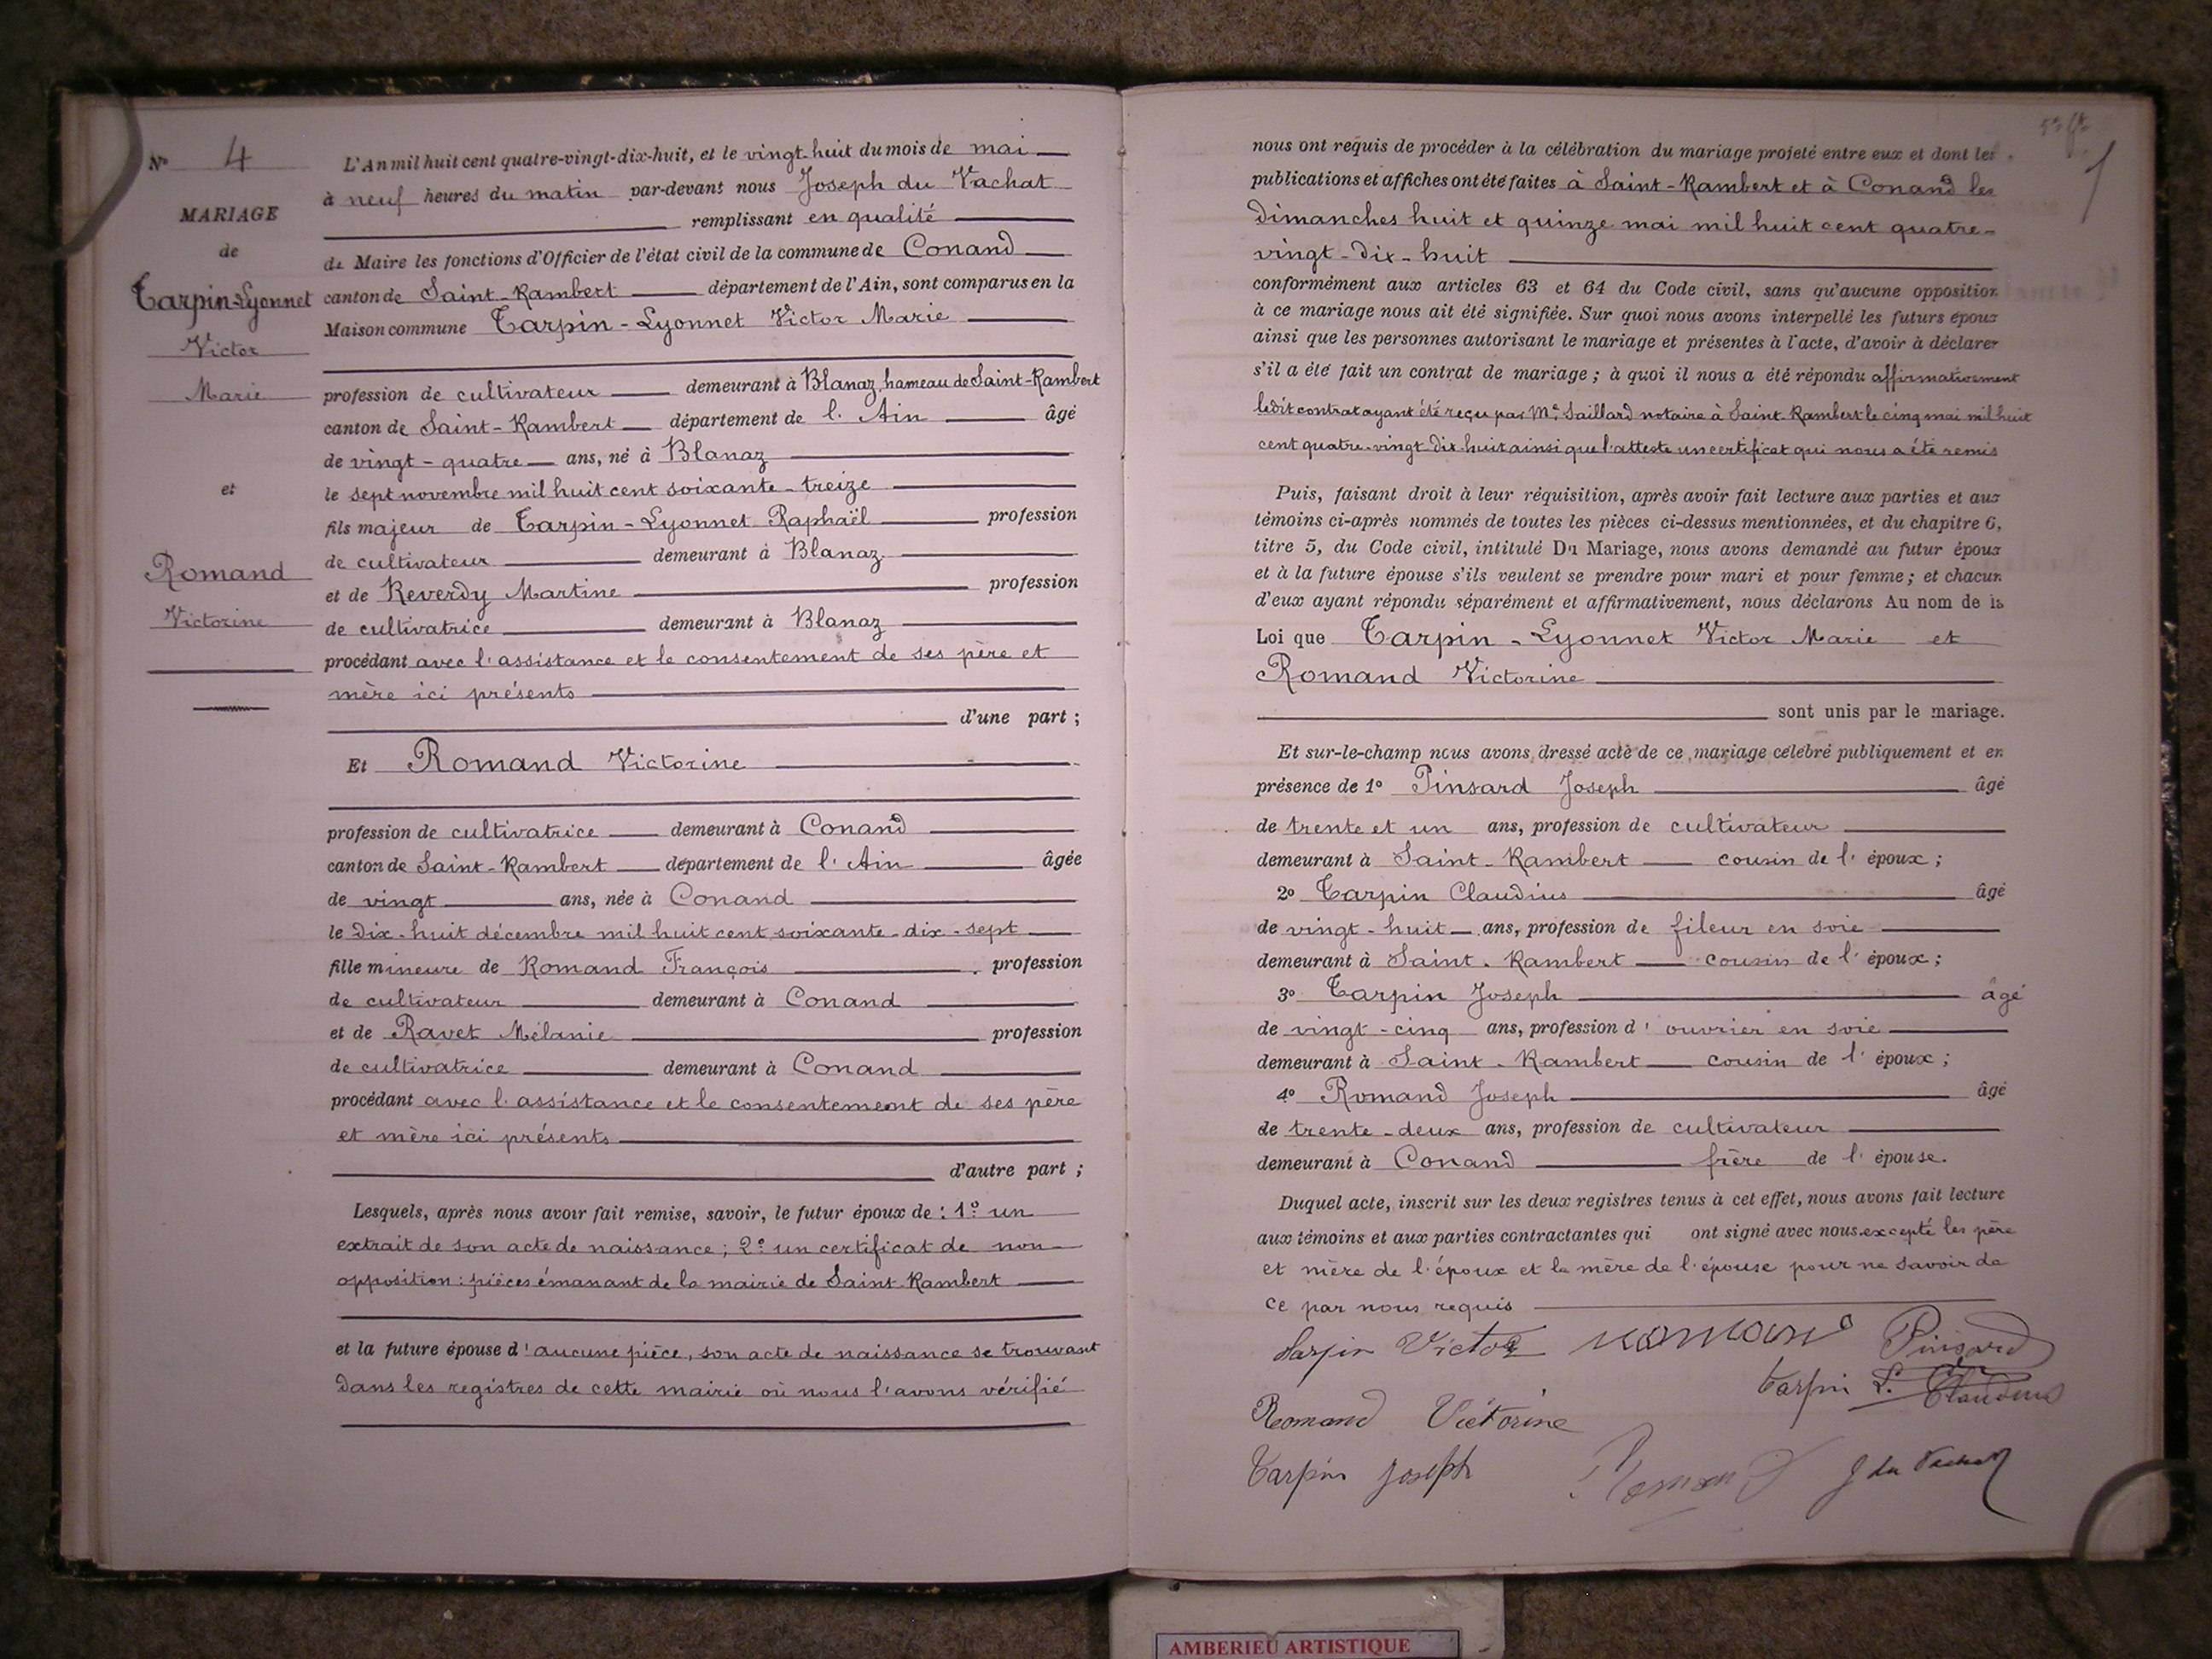 N° 4
MARIAGE
de
Tarpin-Lyonnet
Victor
Marie
et
Romand
Victorine
L'An mil huit cent quatre-vingt-dix-huit, et le vingt-huit du mois de mai
à neuf heures du matin par-devant nous Joseph du Vachat
remplissant en qualité
de Maire les fonctions d'Officier de l'état civil de la commune de Conand
canton de Saint-Rambert département de l'Ain, sont comparus en la
Maison commune Tarpin-Lyonnet Victor Marie
profession de cultivateur demeurant à Blanaz, hameau de Saint-Rambert
canton de Saint-Rambert département de l'Ain âgé
de vingt-quatre ans, né à Blanaz
le sept novembre mil huit cent soixante-treize
fils majeur de Tarpin-Lyonnet Raphaël profession
de cultivateur demeurant à Blanaz
et de Reverdy Martine profession
de cultivatrice demeurant à Blanaz
procédant avec l'assistance et le consentement de ses père et
mère ici présents
d'une part ;
Et Romand Victorine
profession de cultivatrice demeurant à Conand
canton de Saint-Rambert département de l'Ain âgée
de vingt ans, née à Conand
le dix-huit décembre mil huit cent soixante-dix-sept
fille mineure de Romand François profession
de cultivateur demeurant à Conand
et de Ravet Mélanie profession
de cultivatrice demeurant à Conand
procédant avec l'assistance et le consentement de ses père
et mère ici présents
d'autre part ;
Lesquels, après nous avoir fait remise, savoir, le futur époux de : 1° un
extrait de son acte de naissance ; 2° un certificat de non-
opposition : pièces émanant de la mairie de Saint-Rambert
et la future épouse d'aucune pièce, son acte de naissance se trouvant
dans les registres de cette mairie où nous l'avons vérifié
nous ont requis de procéder à la célébration du mariage projeté entre eux et dont les
publications et affiches ont été faites à Saint-Rambert et à Conand les
dimanches huit et quinze mai mil huit cent quatre-
vingt-dix-huit
conformément aux articles 63 et 64 du Code civil, sans qu'aucune opposition
à ce mariage nous ait été signifiée. Sur quoi nous avons interpellé les futurs époux
ainsi que les personnes autorisant le mariage et présentes à l'acte, d'avoir à déclarer
s'il a été fait un contrat de mariage ; à quoi il nous a été répondu affirmativement
ledit contrat ayant été reçu par Me Saillard notaire à Saint-Rambert le cinq mai mil huit
cent quatre-vingt-dix-huit ainsi que l'atteste un certificat qui nous a été remis
Puis, faisant droit à leur réquisition, après avoir fait lecture aux parties et aux
témoins ci-après nommés de toutes les pièces ci-dessus mentionnées, et du chapitre 6,
titre 5, du Code civil, intitulé Du Mariage, nous avons demandé au futur époux
et à la future épouse s'ils veulent se prendre pour mari et pour femme ; et chacun
d'eux ayant répondu séparément et affirmativement, nous déclarons Au nom de la
Loi que Tarpin-Lyonnet Victor Marie et
Romand Victorine
sont unis par le mariage.
Et sur-le-champ nous avons dressé acte de ce mariage célébré publiquement et en
présence de 1° Pinsard Joseph âgé
de trente et un ans, profession de cultivateur
demeurant à Saint-Rambert cousin de l'époux ;
2° Tarpin Claudius âgé
de vingt-huit ans, profession de fileur en soie
demeurant à Saint-Rambert cousin de l'époux ;
3° Tarpin Joseph âgé
de vingt-cinq ans, profession d'ouvrier en soie
demeurant à Saint-Rambert cousin de l'époux ;
4° Romand Joseph âgé
de trente-deux ans, profession de cultivateur
demeurant à Conand frère de l'épouse.
Duquel acte, inscrit sur les deux registres tenus à cet effet, nous avons fait lecture
aux témoins et aux parties contractantes qui ont signé avec nous excepté les père
et mère de l'époux et la mère de l'épouse pour ne savoir de
ce par nous requis
Tarpin Victor Romand Pinsard
Tarpin L. Claudius
Romand Victorine
Tarpin Joseph Romand J du Vachat
AMBERIEU ARTISTIQUE